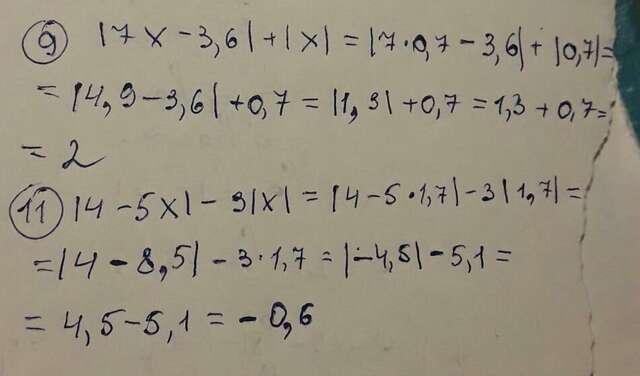 9 |7x - 3,6| + |x| = |7·0,7 - 3,6| + |0,7| =
= |4,9 - 3,6| + 0,7 = |1,3| + 0,7 = 1,3 + 0,7 =
= 2
11 |4 - 5x| - 3|x| = |4 - 5·1,7| - 3|1,7| =
= |4 - 8,5| - 3·1,7 = |-4,5| - 5,1 =
= 4,5 - 5,1 = -0,6